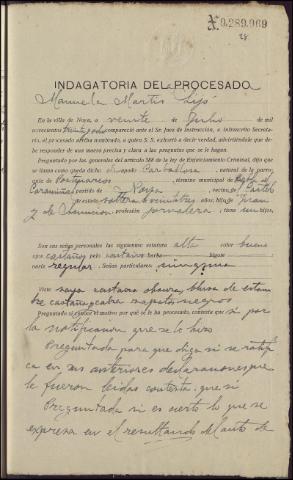 X 0.289.069
28
INDAGATORIA DEL PROCESADO
Manuela Martis Lijó
En la villa de Noya, a veinte de Junio de mil
novecientos treinta y ocho compareció ante el Sr. Juez de Instrucción, e infrascrito Secreta-
rio, el procesado arriba nombrado, a quien S. S. exhortó a decir verdad, advirtiéndole que de-
be responder de una manera precisa y clara a las preguntas que se le hagan.
Preguntado por las generales del artículo 388 de la ley de Enjuiciamiento Criminal, dijo que
se llama como queda dicho natural de la parro-
quia de término municipal de
Caramiñal partido de Noya, vecina de
estado soltera de años, hija de Juan
y de profesión jornalera, tiene hijos,
Son sus señas personales las siguientes: estatura alta color bueno
ojos castaños pelo castaño barba bigote
nariz regular. Señas particulares ninguna
Viste saya castaña obscura, blusa de estam-
bre castaño, calza zapatos negros
Preguntado si conoce el motivo por qué se le ha procesado, contesta que si por
la notificacion que se le hizo
Preguntada para que diga si se ratifi
ca en sus anteriores declaraciones que
le fueron leidas contesta: que si
Preguntada si es cierto lo que se
expresa en el resultando del auto de